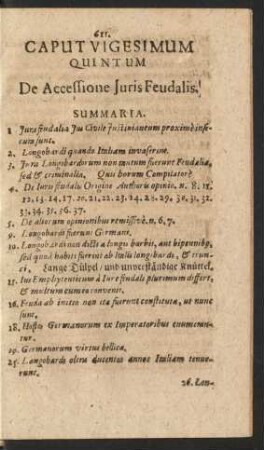 611.
CAPUT VIGESIMUM
QUINTUM
De Accessione Juris Feudalis.
SUMMARIA.
1 Jura feudalia Jus Civile Justinianeum proximè inse-
cuta sunt.
2. Longobardi quando Italiam invaserint.
3. Jura Longobardorum non tantum fuerunt Feudalia,
sed & criminalia. Qui horum Compilatores
4. De Juris feudalis Origine Authoris opinio. n. 8. 11.
12. 13. 14. 17. 10. 21. 22. 23. 24. 29. 30. 31. 32.
33. 34. 35. 36. 37.
5. De aliorum opinionibus remissivè. n. 6. 7.
9. Longobardi fuerunt Germani.
10. Longobardi non dicti a longis barbis, aut bipennibus,
sed quod habiti fuerint ab Italis longi bardi, & trun-
ci, Lange Dülpel, und unverständige Knüttel.
15. Jus Emphyteuticum à Jure feudali plurimum differt,
& multum cum eo convenit.
16. Feuda ab initio non ita fuerunt constituta, ut nunc
sunt.
18. Hostes Germanorum ex Imperatoribus enumeran-
tur.
19. Germanorum virtus bellica.
25. Longobardi ultra ducentos annos Italiam tenue-
runt.
26. Lon-